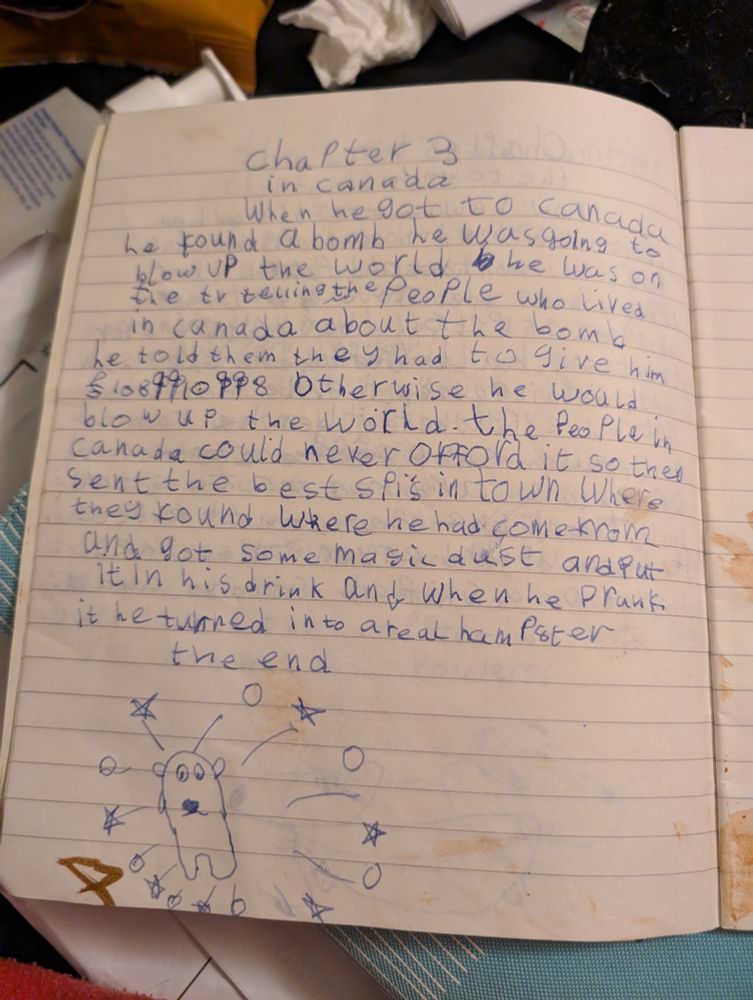 chapter 3
in canada
When he got to canada
he found a bomb he was going to
blow up the world he was on
the tv telling the people who lived
in canada about the bomb
he told them they had to give him
otherwise he would
blow up the world. the people in
canada could never offord it so they
sent the best spis in town where
they found where he had come from
and got some magic dust and put
it in his drink and when he prunk
it he turned into a real hampster
the end